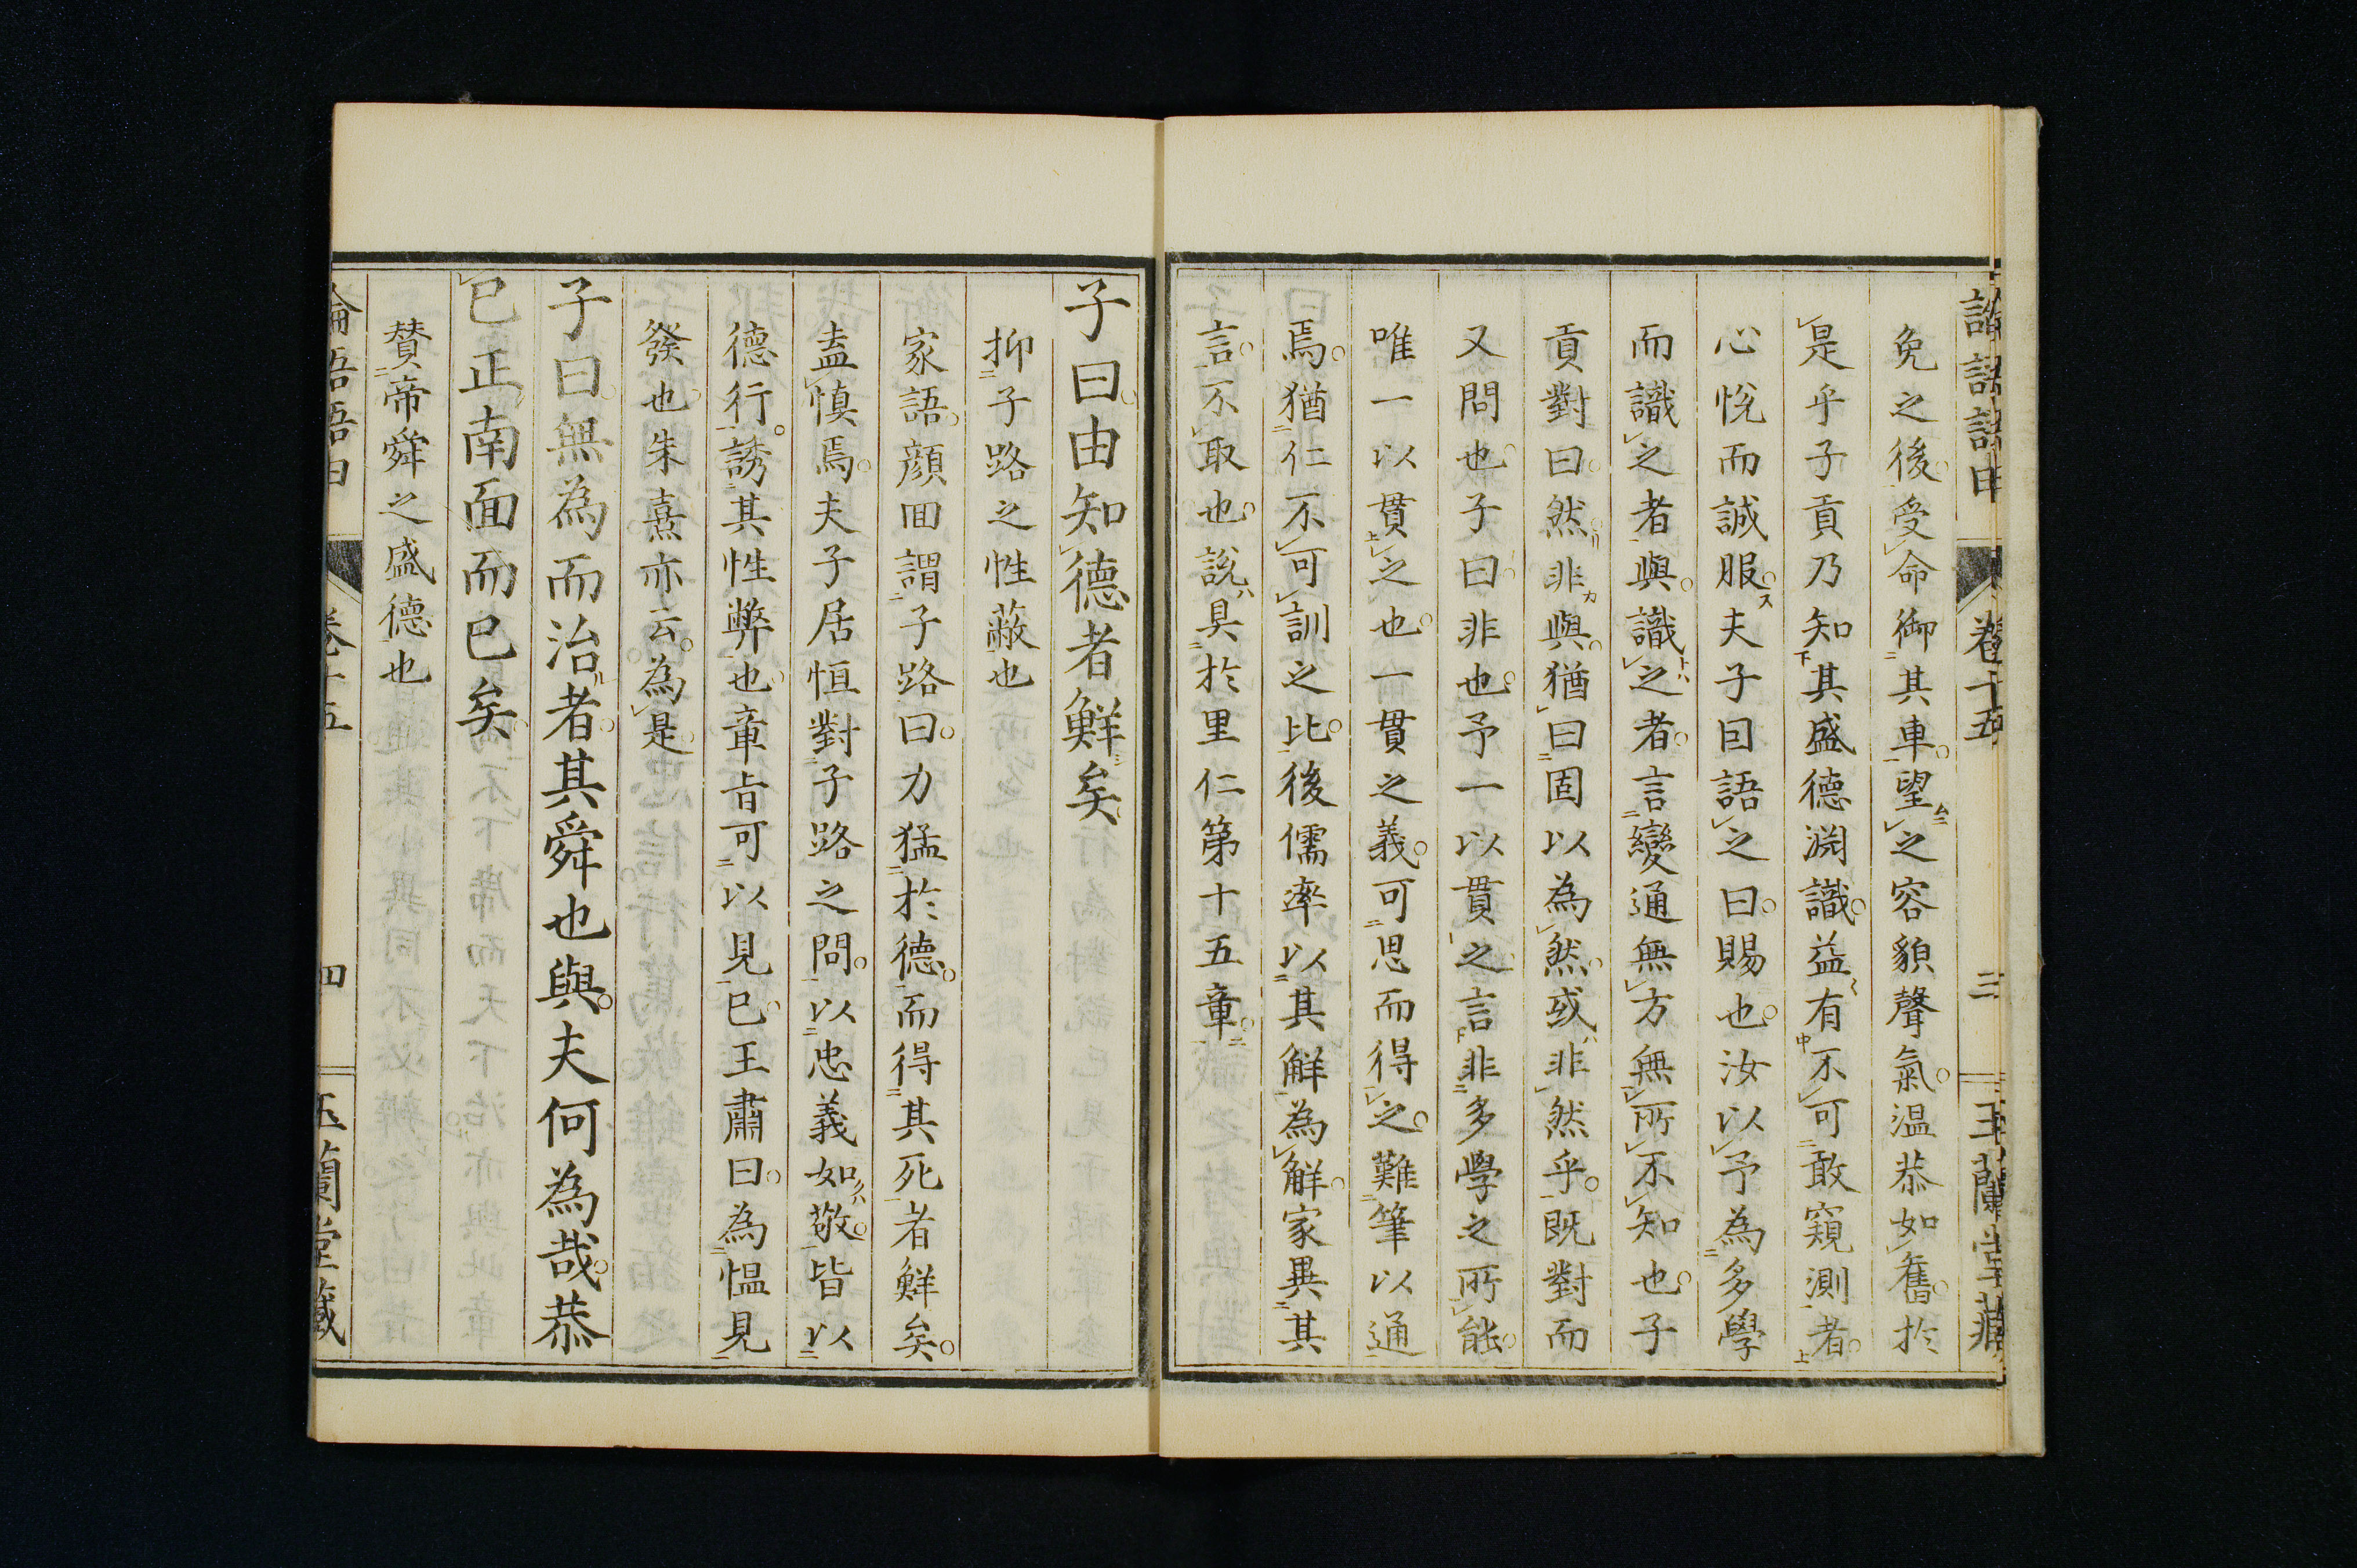 免之後受命御其車望之容貌聲氣温恭如舊於
是乎子貢乃知其盛德淵識益有不可敢窺測者
心悅而誠服夫子因語之曰賜也汝以予為多學
而識之者與識之者言變通無方無所不知也子
貢對曰然非與猶曰固以為然或非然乎既對而
又問也子曰非也予一以貫之言非多學之所能
唯一以貫之也一貫之義可思而得之難筆以通
焉猶仁不可訓之比後儒率以其解為解家異其
言不取也說具於里仁第十五章
子曰由知德者鮮矣
抑子路之性蔽也
家語顏回謂子路曰力猛於德而得其死者鮮矣
盍慎焉夫子居恒對子路之問以忠義如敬皆以
德行誘其性弊也章旨可以見已王肅曰為慍見
發也朱熹亦云為是
子曰無為而治者其舜也與夫何為哉恭
己正南面而已矣
贊帝舜之盛德也
卷十五
四
玉蘭堂藏